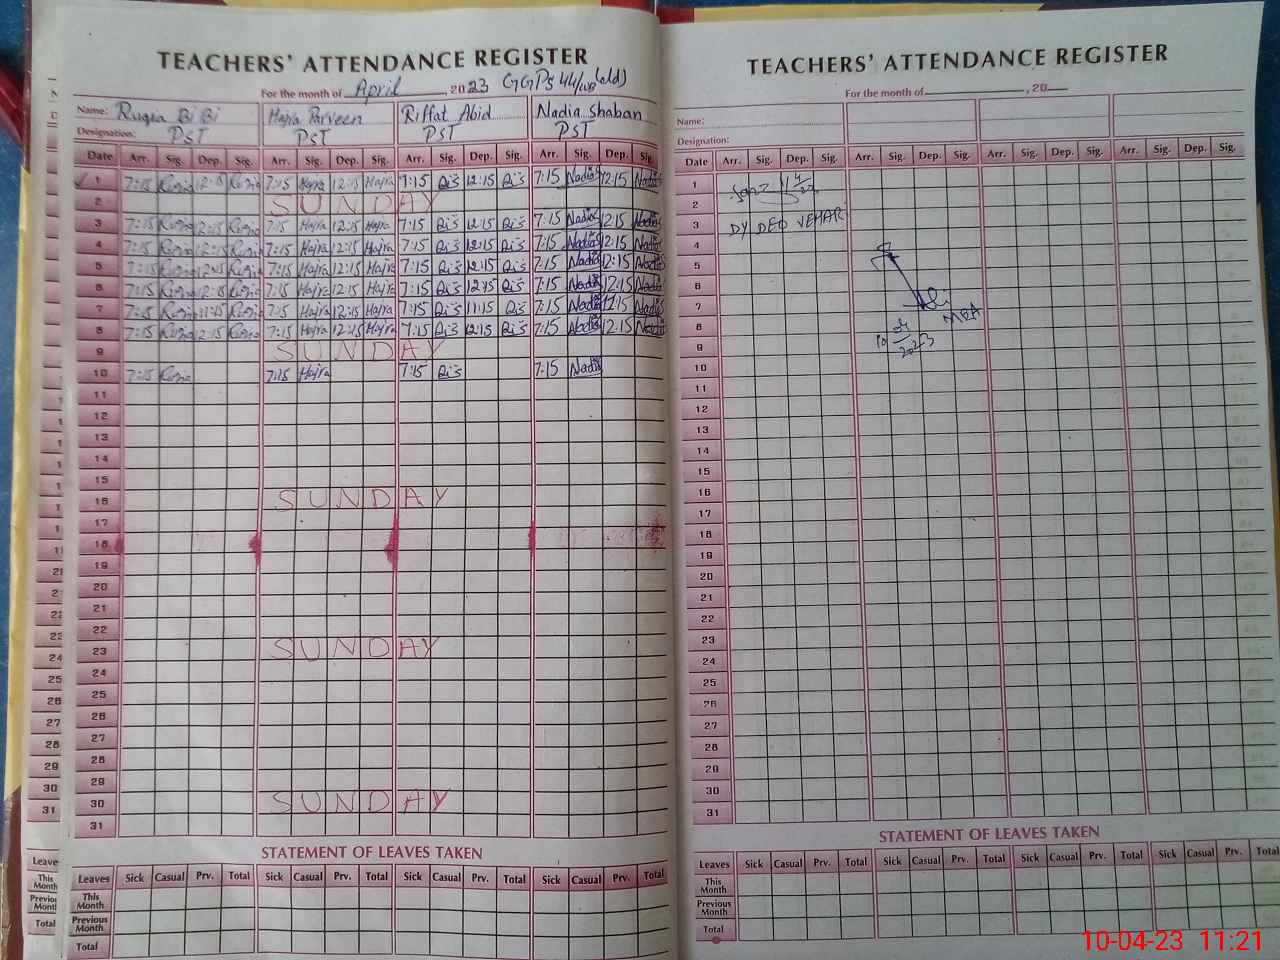 TEACHERS' ATTENDANCE REGISTER
For the month of April , 2023 GGPS 44/WB (old)
Name: Ruqia BiBi Hajra Parveen Riffat Abid Nadia Shaban
Designation: PST PST PST PST
Date Arr. Sig. Dep. Sig. Arr. Sig. Dep. Sig. Arr. Sig. Dep. Sig. Arr. Sig. Dep. Sig.
1 7:15 12:15 7:15 Hajra 12:15 Hajra 7:15 12:15 7:15 Nadia 12:15 Nadia
2 SUNDAY
3 7:15 12:15 7:15 Hajra 12:15 Hajra 7:15 12:15 7:15 Nadia 12:15 Nadia
4 7:15 12:15 7:15 Hajra 12:15 Hajra 7:15 12:15 7:15 Nadia 12:15 Nadia
5 7:15 12:15 7:15 Hajra 12:15 Hajra 7:15 12:15 7:15 Nadia 12:15 Nadia
6 7:15 12:15 7:15 Hajra 12:15 Hajra 7:15 12:15 7:15 Nadia 12:15 Nadia
7 7:15 11:15 7:15 Hajra 12:15 Hajra 7:15 11:15 7:15 Nadia 11:15 Nadia
8 7:15 12:15 7:15 Hajra 12:15 Hajra 7:15 12:15 7:15 Nadia 12:15 Nadia
9 SUNDAY
10 7:15 7:15 Hajra 7:15 7:15 Nadia
11
12
13
14
15
16 SUNDAY
17
18
19
20
21
22
23 SUNDAY
24
25
26
27
28
29
30 SUNDAY
31
STATEMENT OF LEAVES TAKEN
Leaves Sick Casual Prv. Total Sick Casual Prv. Total Sick Casual Prv. Total Sick Casual Prv. Total
This Month
Previous Month
Total
TEACHERS' ATTENDANCE REGISTER
For the month of , 20
Name:
Designation:
Date Arr. Sig. Dep. Sig. Arr. Sig. Dep. Sig. Arr. Sig. Dep. Sig. Arr. Sig. Dep. Sig.
1
2
3 DY DEO VEHARI
4
5
6
7 MEA
8
9 10 2023
10
11
12
13
14
15
16
17
18
19
20
21
22
23
24
25
26
27
28
29
30
31
STATEMENT OF LEAVES TAKEN
Leaves Sick Casual Prv. Total Sick Casual Prv. Total Sick Casual Prv. Total Sick Casual Prv. Total
This Month
Previous Month
Total
10-04-23 11:21